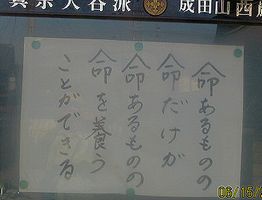 真宗大谷派 成田山西
命あるものの
命だけが
命あるものの
命を養う
ことができる
03/15/